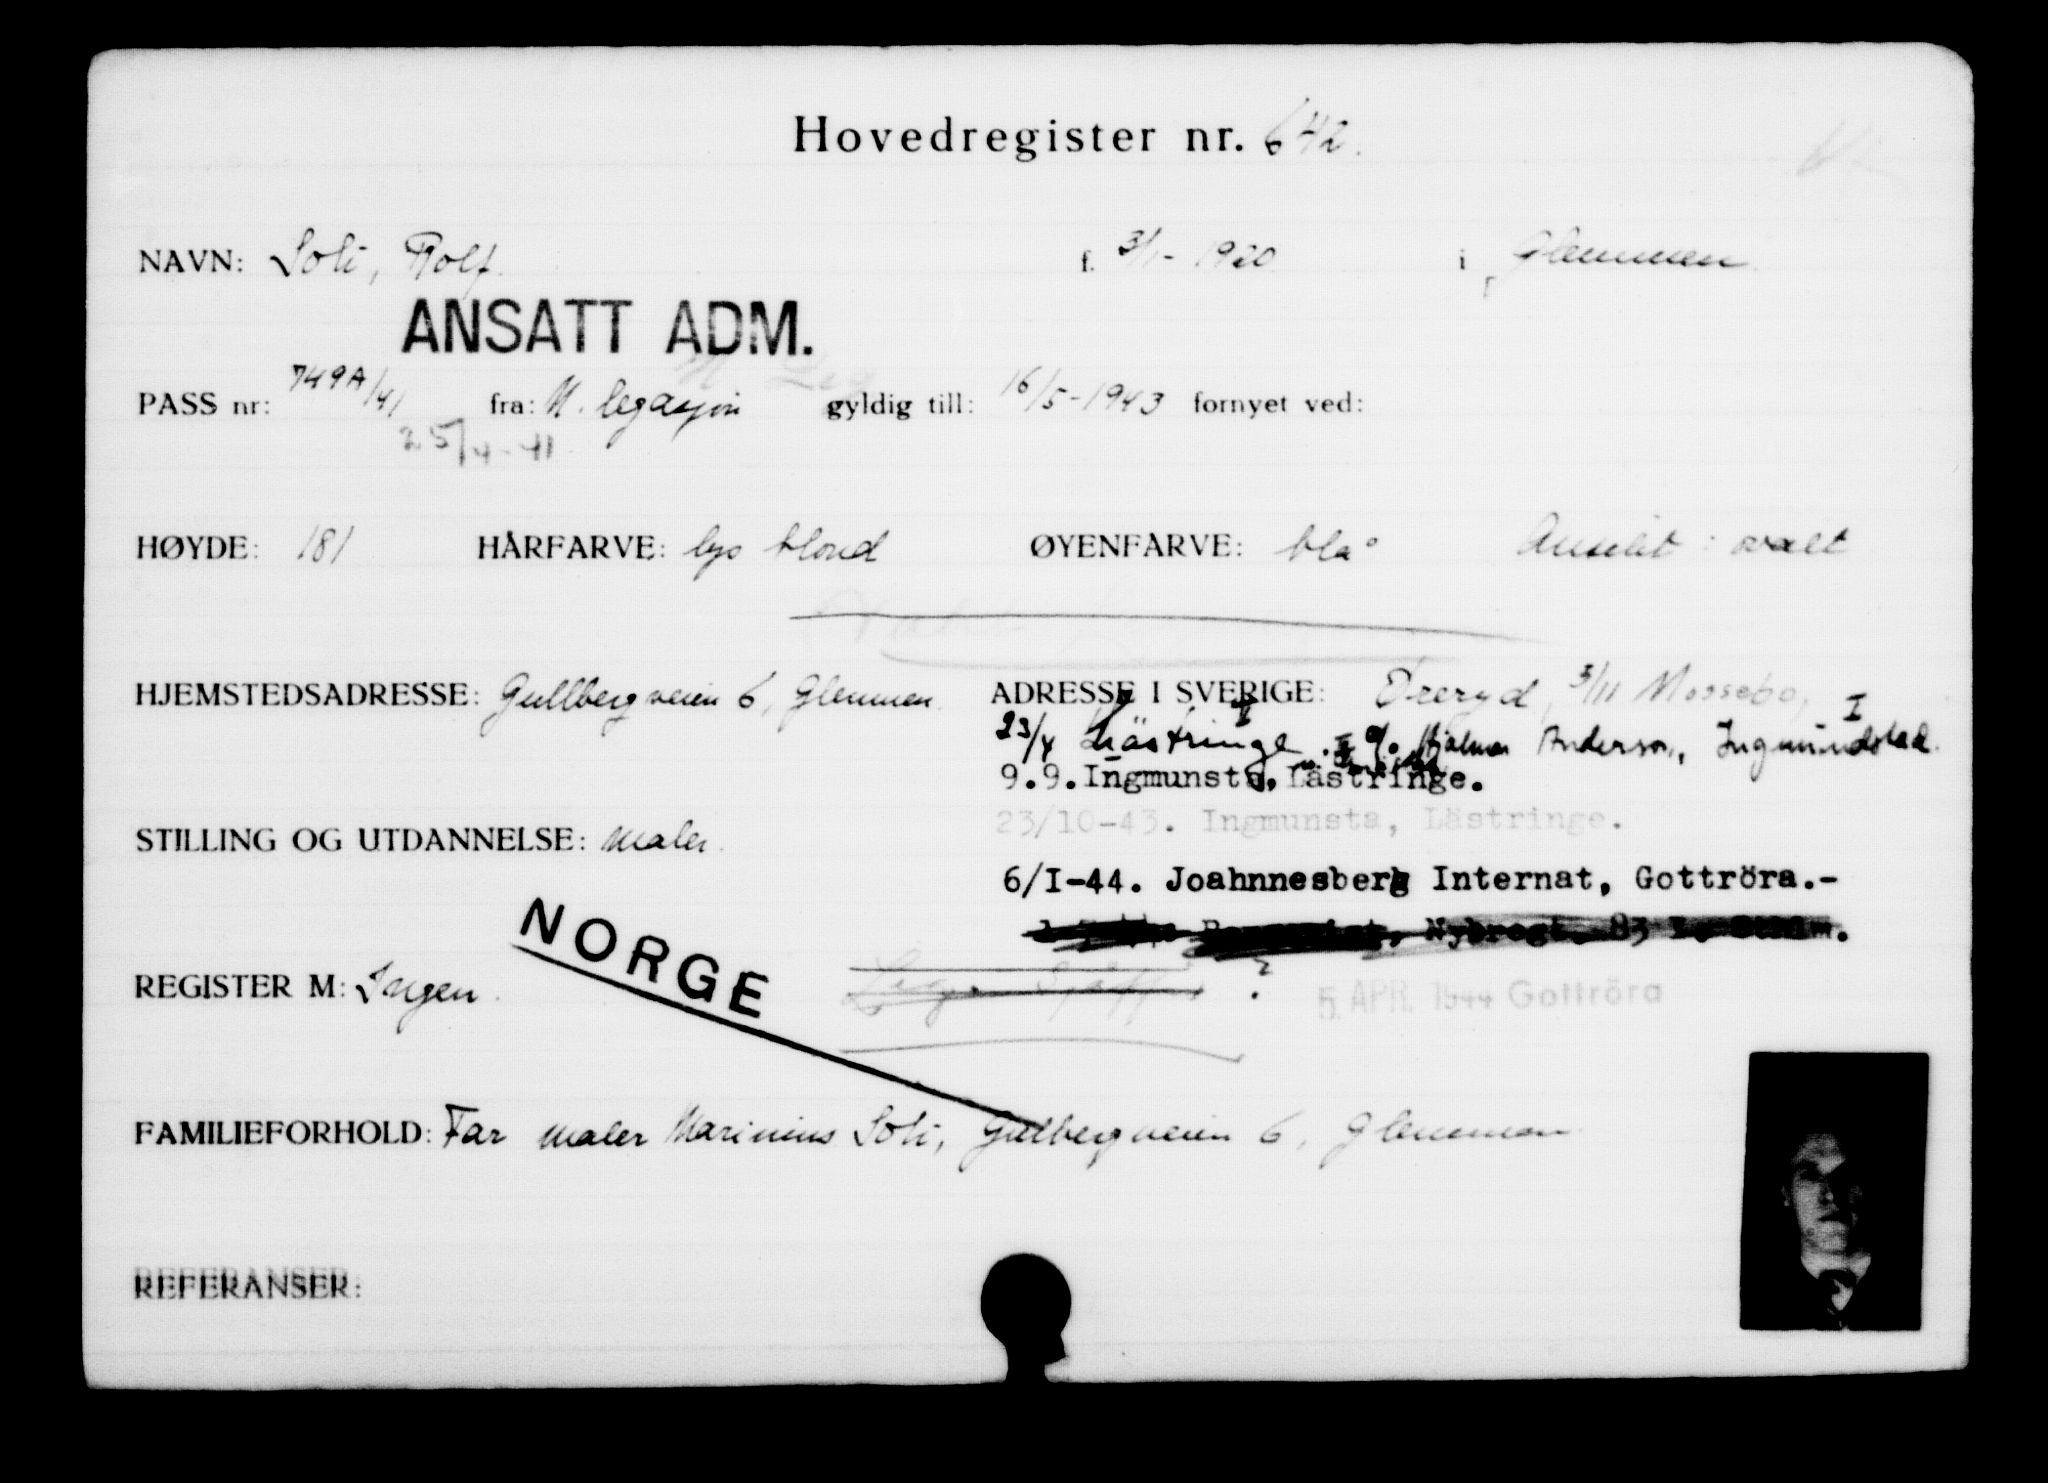 Hovedregister nr. 642.
NAVN: Soli, Rolf. f. 3/1-1920 i Glemmen.
ANSATT ADM.
PASS nr: 749A/41 fra: N. legasjon gyldig till: 16/5-1943 fornyet ved:
25/4-41
HØYDE: 181 HÅRFARVE: lys blond ØYENFARVE: blå Ansikt: ovalt
HJEMSTEDSADRESSE: Gullbergveien 6, Glemmen. ADRESSE I SVERIGE: Öreryd, 3/11 Mossebo, I
23/4 Lästringe. c/o Hjalmar Anderson, Ingmundstad.
9.9. Ingmunsta, Lästringe.
23/10-43. Ingmunsta, Lästringe.
STILLING OG UTDANNELSE: Maler.
6/I-44. Joahnnesberg Internat, Gottröra.-
NORGE
REGISTER M: Ingen.
5. APR. 1944 Gottröra
FAMILIEFORHOLD: Far maler Marinius Soli, Gulbergveien 6, Glemmen.
REFERANSER: